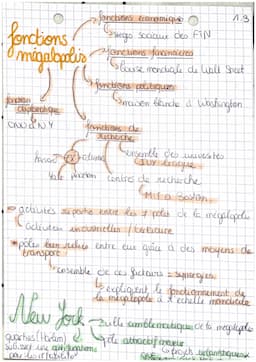 1.3
fonctions mégalopolis
fonctions économiques
sièges sociaux des FTN
fonctions financières
bourse mondiale de Wall Street
fonctions politiques
maison blanche à Washington
fonction diplomatique
ONU à NY
fonctions de recherche
ensemble des universités
Yale
centres de recherche
MIT à Boston
activités répartie entre les pôles de la mégalopole
activités industrielles / tertiaire
pôles bien reliés entre eux grâce à des moyens de transport
ensemble de ces facteurs = synergies
expliquent le fonctionnement de la mégalopole à l'échelle mondiale
New York
ville emblématique de la mégalopole
pôle attractif majeur
quartiers
projets